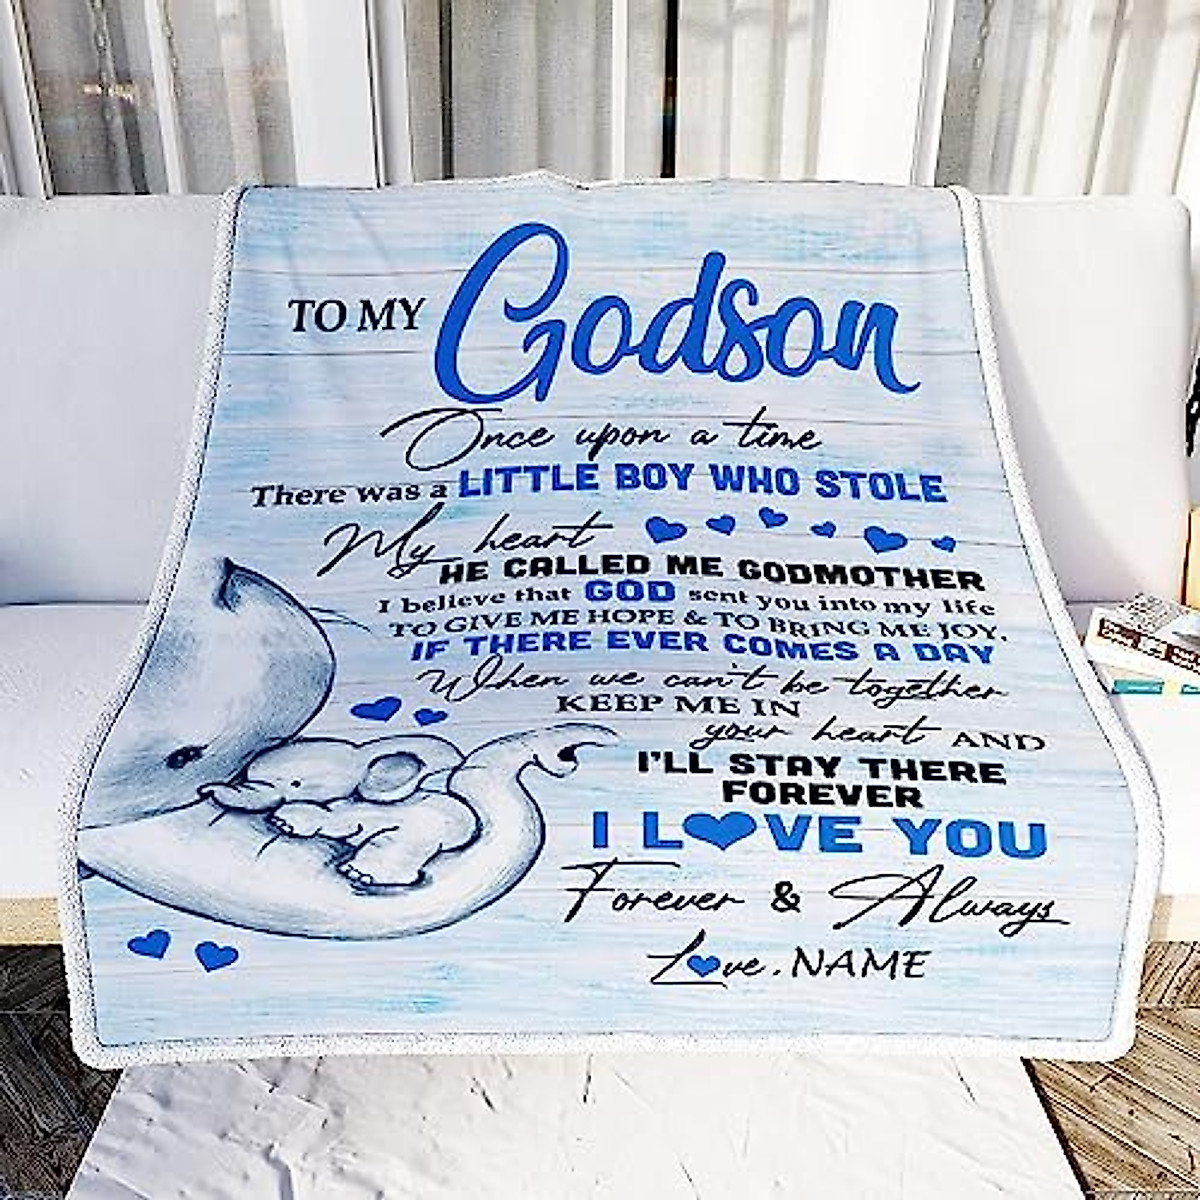 TO MY Godson
Once upon a time
There was a LITTLE BOY WHO STOLE
My heart
HE CALLED ME GODMOTHER
I believe that GOD sent you into my life
TO GIVE ME HOPE & TO BRING ME JOY,
IF THERE EVER COMES A DAY
When we can't be together
KEEP ME IN
your heart AND
I'LL STAY THERE
FOREVER
I LOVE YOU
Forever & Always
Love, NAME